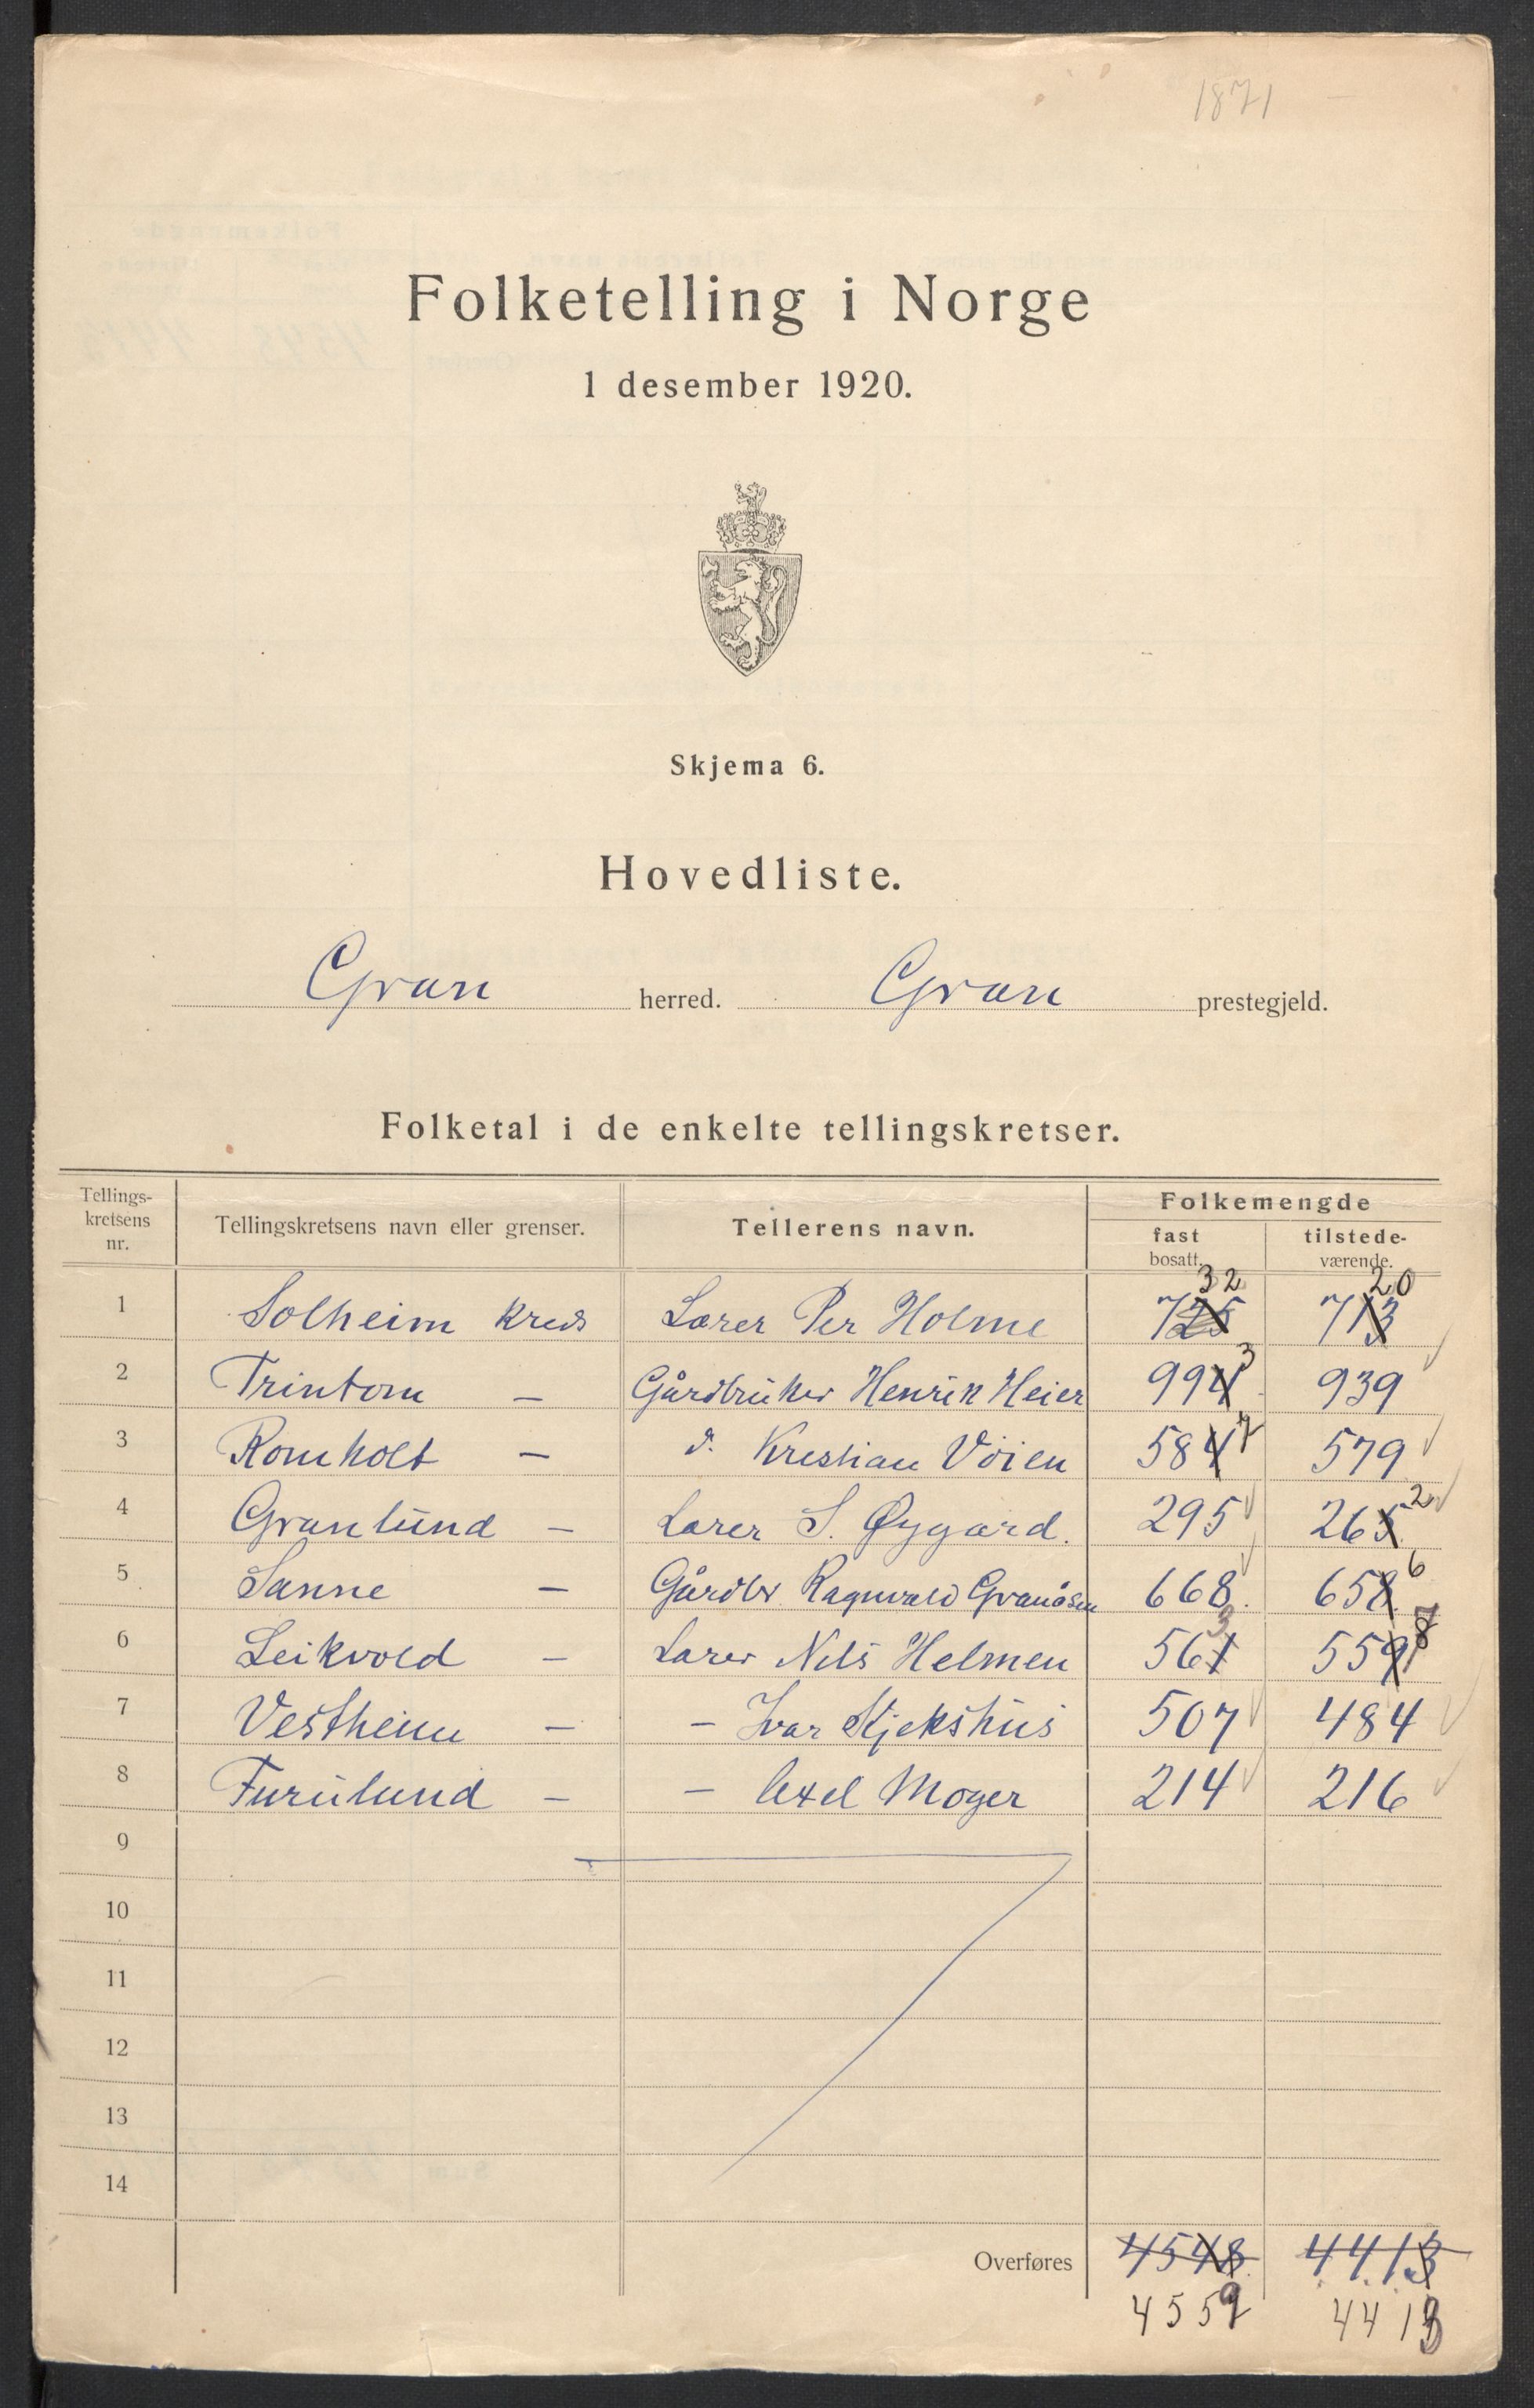 1871
Folketelling i Norge
1 desember 1920.
Skjema 6.
Hovedliste.
Gran herred. Gran prestegjeld.
Folketal i de enkelte tellingskretser.
Tellingskretsens nr. Tellingskretsens navn eller grenser. Tellerens navn. Folkemengde fast bosatt. tilstedeværende.
1 Solheim kreds Lærer Per Holme 725 32 713 20
2 Trintom – Gårdbruker Henrik Heier 994 3 939
3 Romholt – d. Kristian Vöien 584 7 579
4 Granlund – Lærer S. Øygard. 295 265 2
5 Sanne – Gårdbr Ragnvald Granåsen 668. 658 6
6 Leikvold – Lærer Nils Helmen 561 3 559 8
7 Vestheim – – Ivar Skjekshus 507 484
8 Furulund – – Axel Moger 214 216
9
10
11
12
13
14
Overføres 4548 4413
4559 4413